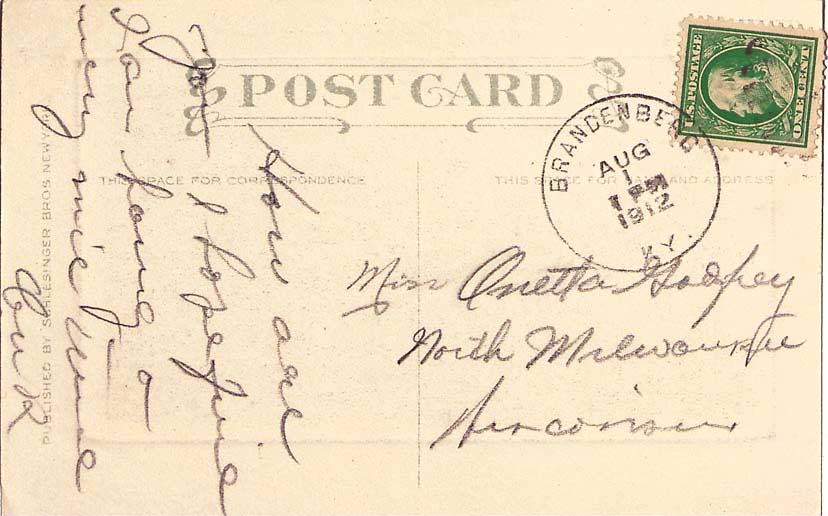 POST CARD
THIS SPACE FOR CORRESPONDENCE
THIS SPACE FOR NAME AND ADDRESS
PUBLISHED BY SCHLESINGER BROS NEW YORK
U.S. POSTAGE
ONE CENT
BRANDENBERG
AUG
1
1 PM
1912
KY.
How are
you I hope fine
I am having a
very nice time
Miss Onetta Godfrey
North Milwaukee
Wisconsin